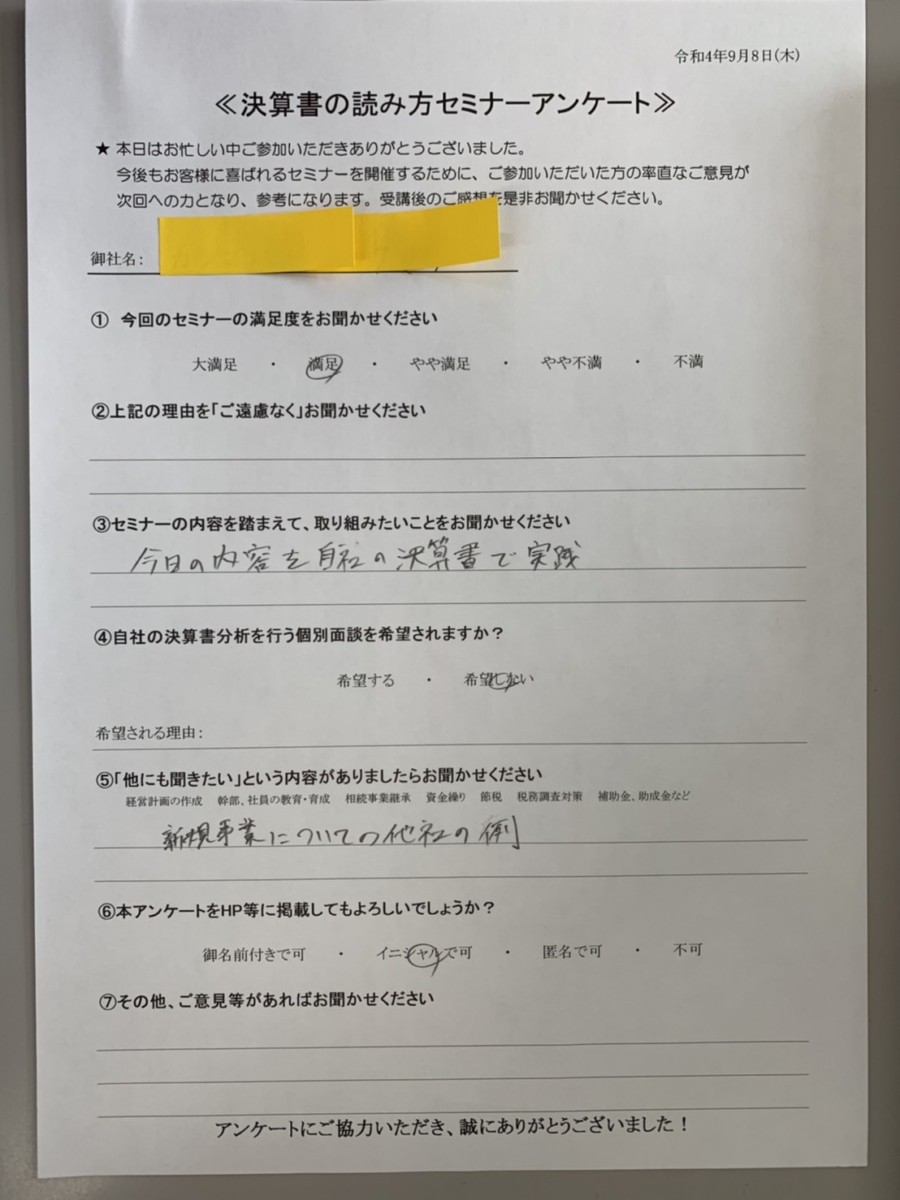 令和4年9月8日(木)
≪決算書の読み方セミナーアンケート≫
★ 本日はお忙しい中ご参加いただきありがとうございました。
今後もお客様に喜ばれるセミナーを開催するために、ご参加いただいた方の率直なご意見が
次回への力となり、参考になります。受講後のご感想を是非お聞かせください。
御社名：
① 今回のセミナーの満足度をお聞かせください
大満足 ・ 満足 ・ やや満足 ・ やや不満 ・ 不満
②上記の理由を「ご遠慮なく」お聞かせください
③セミナーの内容を踏まえて、取り組みたいことをお聞かせください
今日の内容を自社の決算書で実践
④自社の決算書分析を行う個別面談を希望されますか？
希望する ・ 希望しない
希望される理由：
⑤「他にも聞きたい」という内容がありましたらお聞かせください
経営計画の作成 幹部、社員の教育・育成 相続事業継承 資金繰り 節税 税務調査対策 補助金、助成金など
新規事業についての他社の例
⑥本アンケートをHP等に掲載してもよろしいでしょうか？
御名前付きで可 ・ イニシャルで可 ・ 匿名で可 ・ 不可
⑦その他、ご意見等があればお聞かせください
アンケートにご協力いただき、誠にありがとうございました！